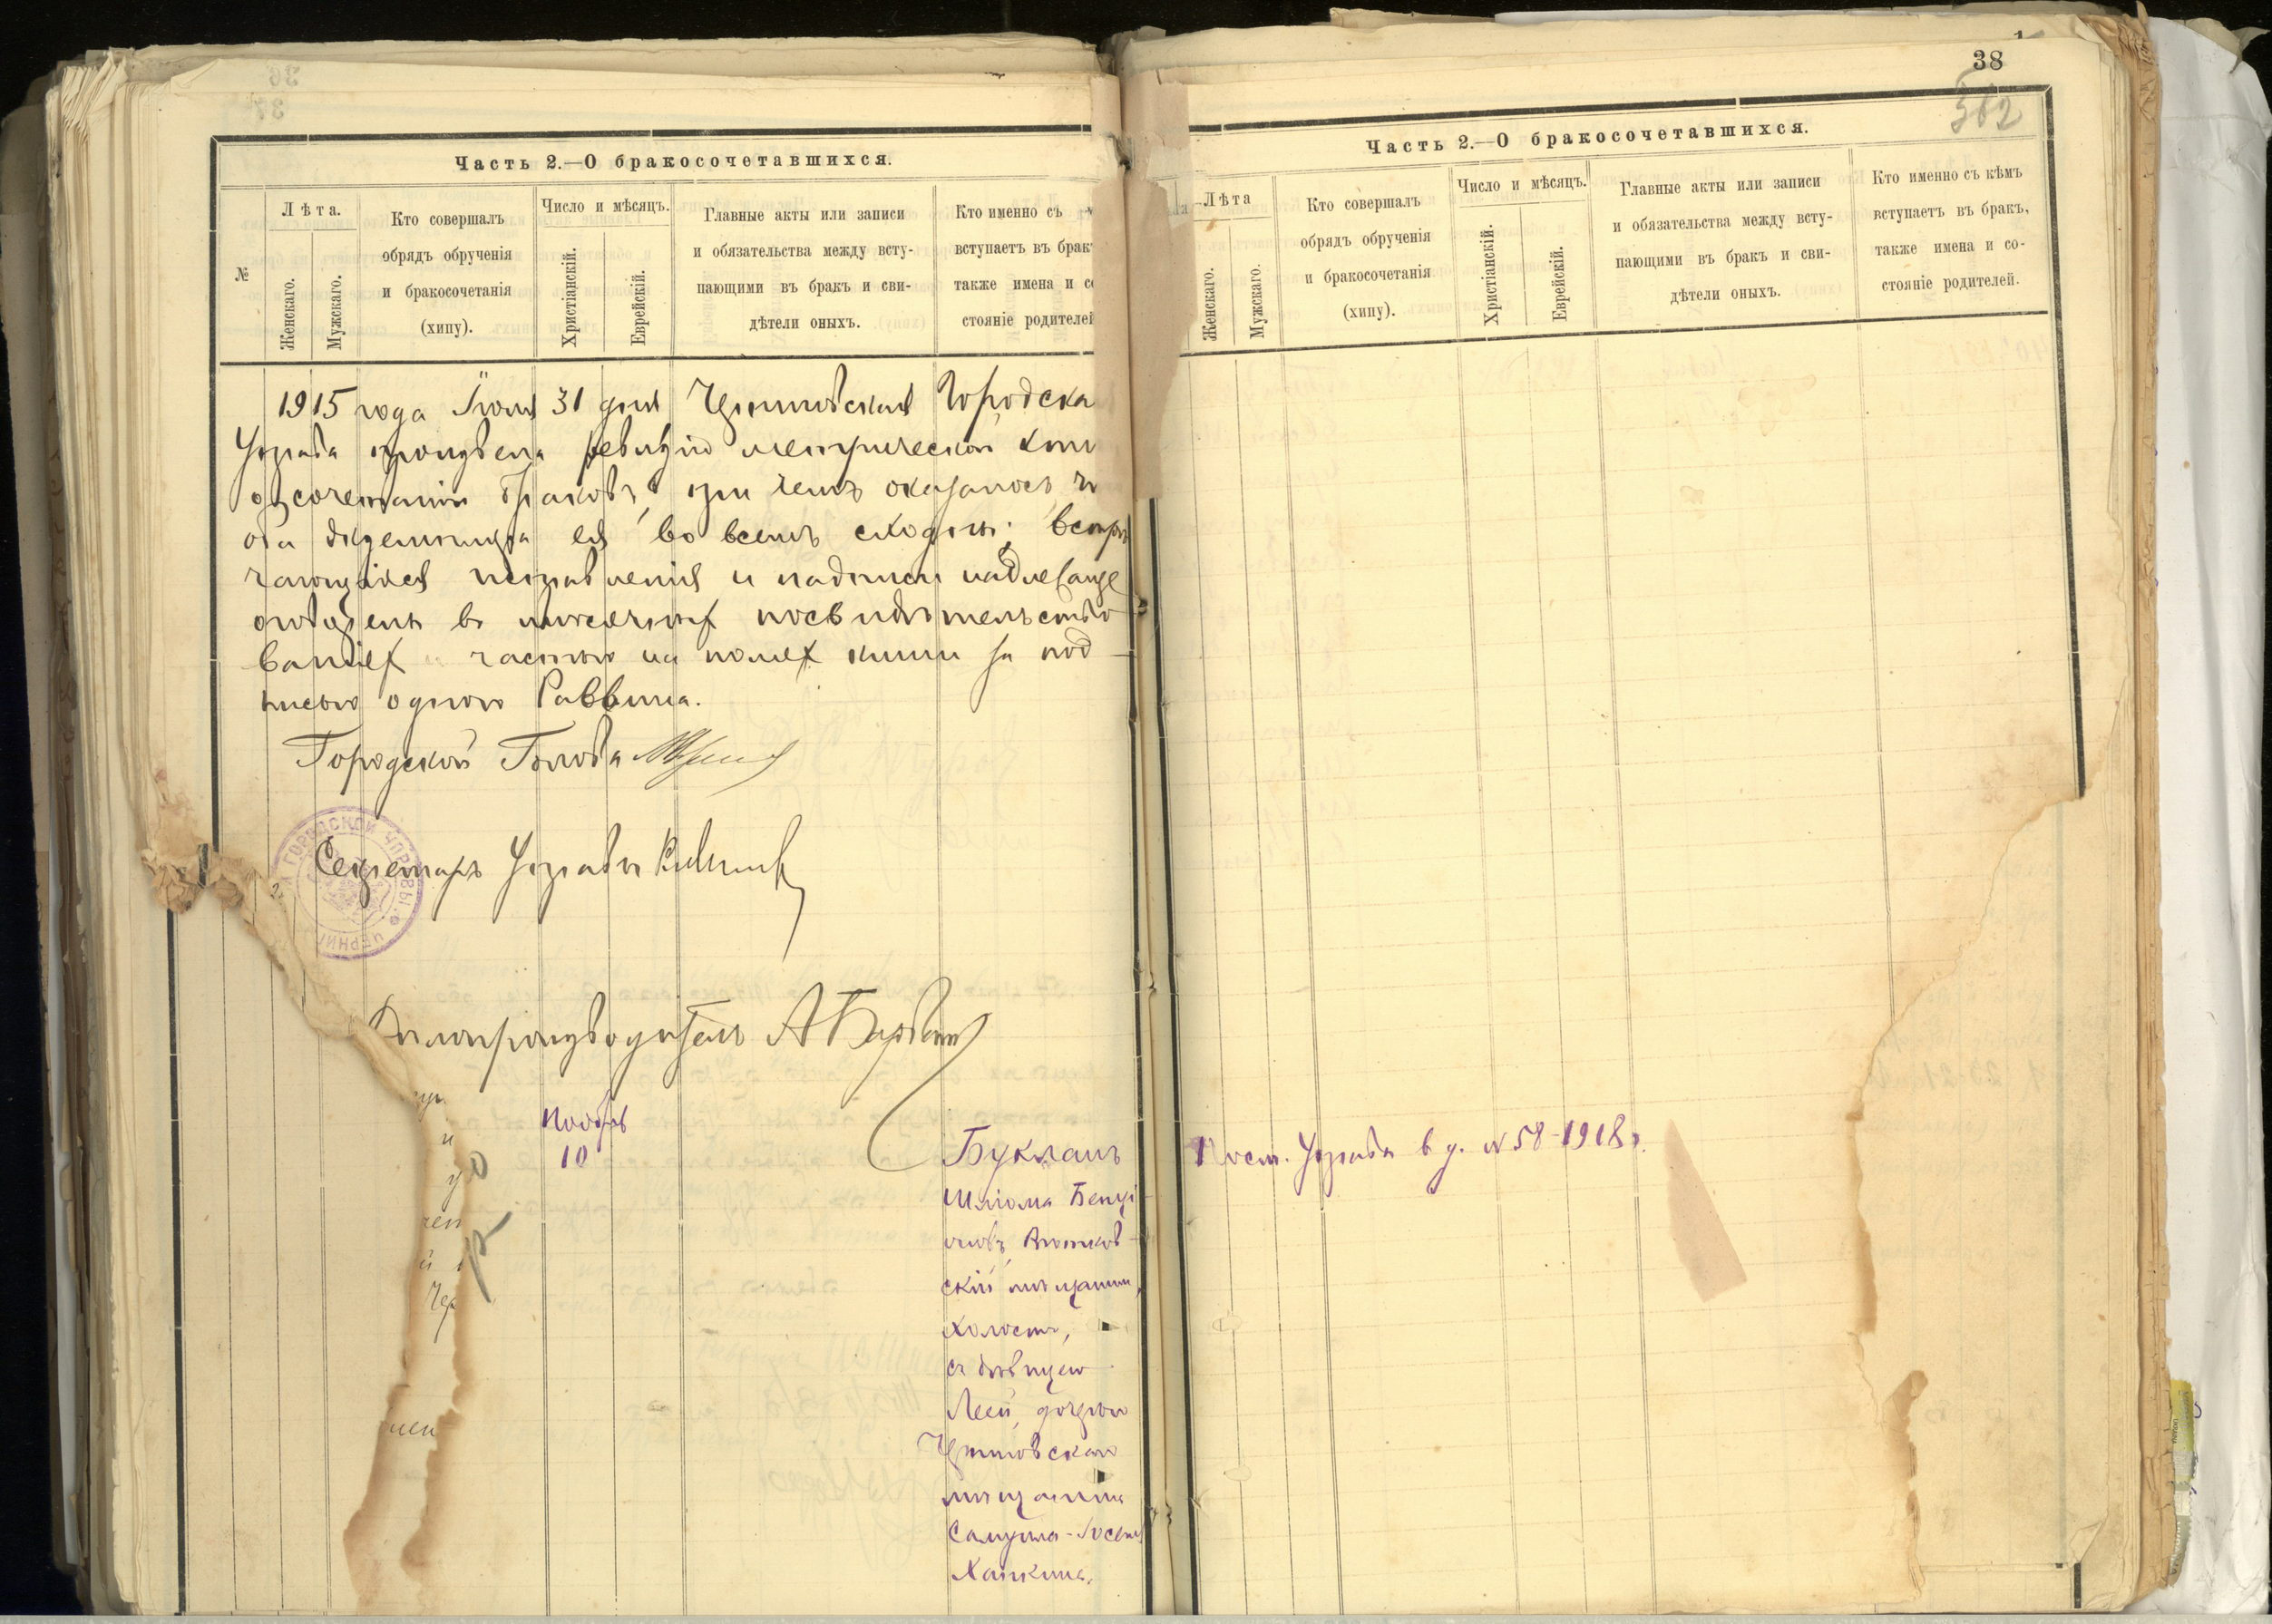 38
562
Часть 2.—О бракосочетавшихся.
№
Лѣта.
Женскаго.
Мужскаго.
Кто совершалъ
обрядъ обрученія
и бракосочетанія
(хипу).
Число и мѣсяцъ.
Христіанскій.
Еврейскій.
Главные акты или записи
и обязательства между всту-
пающими въ бракъ и сви-
дѣтели оныхъ.
Кто именно съ
вступаетъ въ брак
также имена и со
стояніе родителей
1915 года Іюля 31 дня Черниговская Городска
Управа произвела ревизію метрической кни
о сочетаніи браковъ, при чемъ оказалось ч
оба экземпляра ея во всемъ сходны; встрѣ
чающіяся исправленія и надписи надлежаще
оговорены въ мѣсячных посвидѣтельство
ваніях и частью на полях книги за под
писью одного Раввина.
Городской Голова
Секретарь Управы
ГОРОДСКОЙ УПРАВЫ
ЧЕРНИГ
Дѣлопроизводитель А
Ноябрь
10
Букманъ
Шлiома Бенці
оновъ,
скій мѣщанин,
холостъ,
съ дѣвицею
Леей, дочерью
Черниговскаго
мѣщанина
Самуила-Іоселя
Ханкина.
Часть 2.—О бракосочетавшихся.
Лѣта
Женскаго.
Мужскаго.
Кто совершалъ
обрядъ обрученія
и бракосочетанія
(хипу).
Число и мѣсяцъ.
Христіанскій.
Еврейскій.
Главные акты или записи
и обязательства между всту-
пающими въ бракъ и сви-
дѣтели оныхъ.
Кто именно съ кѣмъ
вступаетъ въ бракъ,
также имена и со-
стояніе родителей.
Пост. Управы в д. № 58-1918 г.